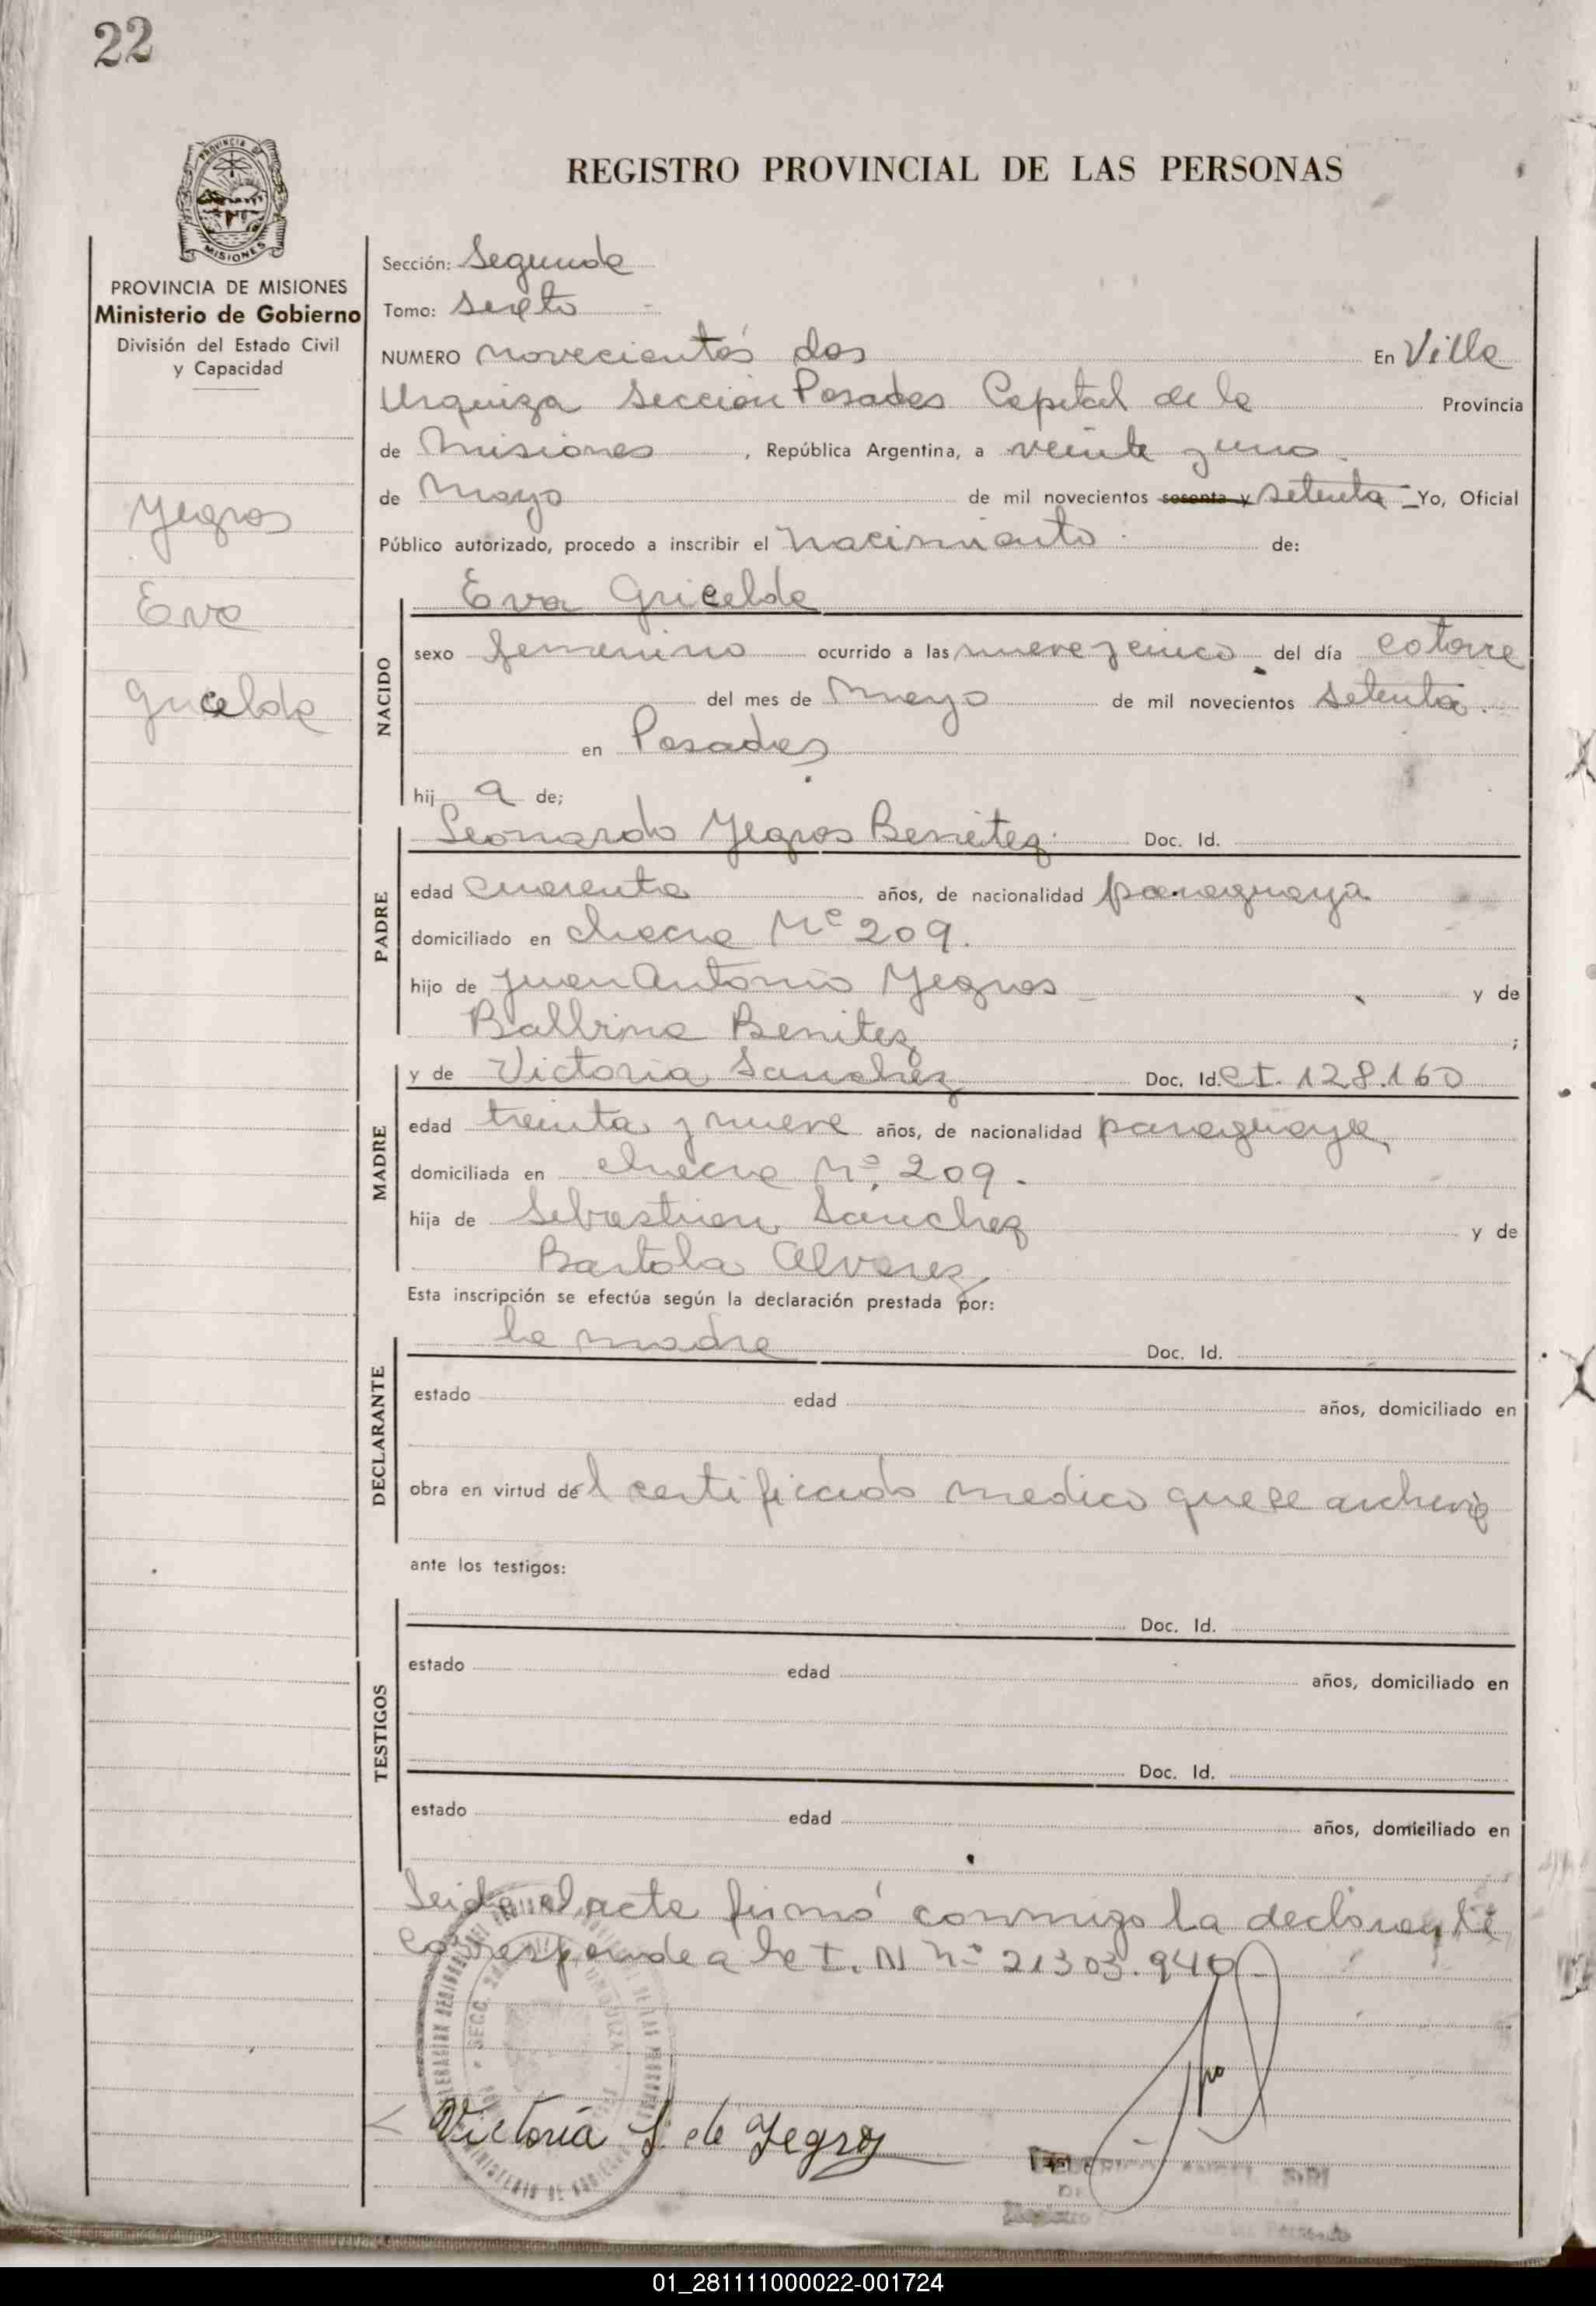 22
PROVINCIA DE
MISIONES
REGISTRO PROVINCIAL DE LAS PERSONAS
PROVINCIA DE MISIONES
Ministerio de Gobierno
División del Estado Civil
y Capacidad
Yegros
Eva
Gricelda
Sección: Segunda
Tomo: sexto
NUMERO novecientos dos En Villa
Urquiza Sección Posadas Capital de la Provincia
de Misiones, República Argentina, a veinte y uno.
de Mayo de mil novecientos sesenta y setenta Yo, Oficial
Público autorizado, procedo a inscribir el nacimiento de:
Eva Gricelda
NACIDO
sexo femenino ocurrido a las nueve y cinco del día catorce
del mes de Mayo de mil novecientos setenta.
en Posadas
hij a de;
PADRE
Leonardo Yegros Benitez Doc. Id.
edad cuarenta años, de nacionalidad paraguaya
domiciliado en chacra Nº 209.
hijo de Juan Antonio Yegros y de
Balbina Benitez ;
MADRE
y de Victoria Sanchez Doc. Id. CI. 128.160
edad treinta y nueve años, de nacionalidad paraguaya,
domiciliada en chacra Nº 209.
hija de Sebastian Sanchez y de
Bartola Alvarez
Esta inscripción se efectúa según la declaración prestada por:
DECLARANTE
la madre Doc. Id.
estado edad años, domiciliado en
obra en virtud del certificado medico que se archiva
ante los testigos:
TESTIGOS
Doc. Id.
estado edad años, domiciliado en
Doc. Id.
estado edad años, domiciliado en
Leida el acta firmó conmigo la declarante
Corresponde a la I. N nº 21303.940
Victoria S. de Yegros
01_281111000022-001724